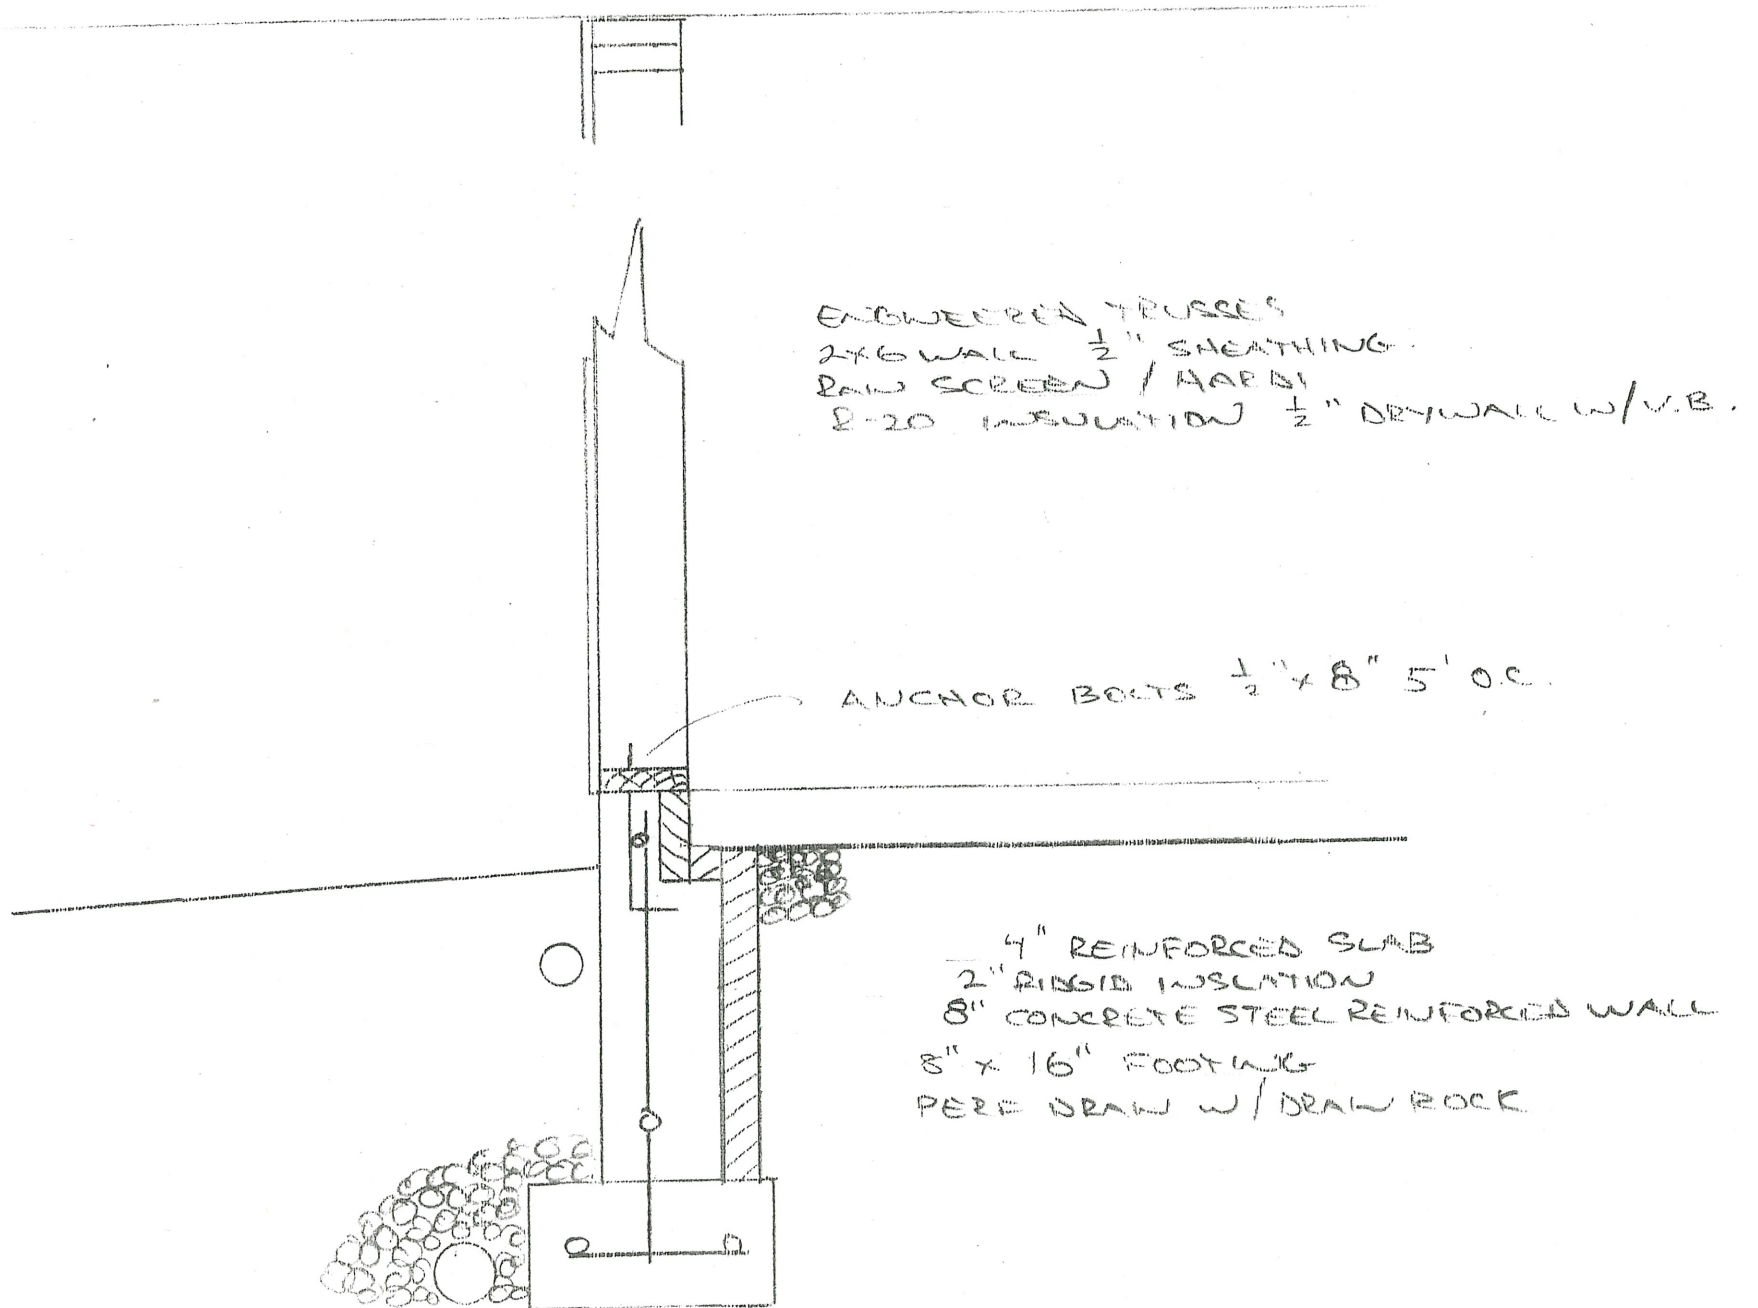 ENGINEERED TRUSSES
2x6 WALL 1/2" SHEATHING
RAIN SCREEN / HARDI
R-20 INSULATION 1/2" DRYWALL W/V.B.
ANCHOR BOLTS 1/2" x 8" 5' O.C.
4" REINFORCED SLAB
2" RIDGID INSLATION
8" CONCRETE STEEL REINFORCED WALL
8" x 16" FOOTING
PERF DRAIN W/ DRAIN ROCK